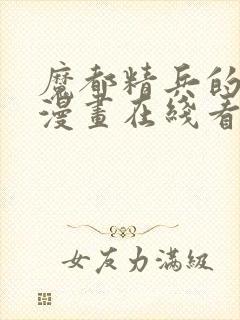 魔都精兵的
漫畫在綫看
女友力滿級